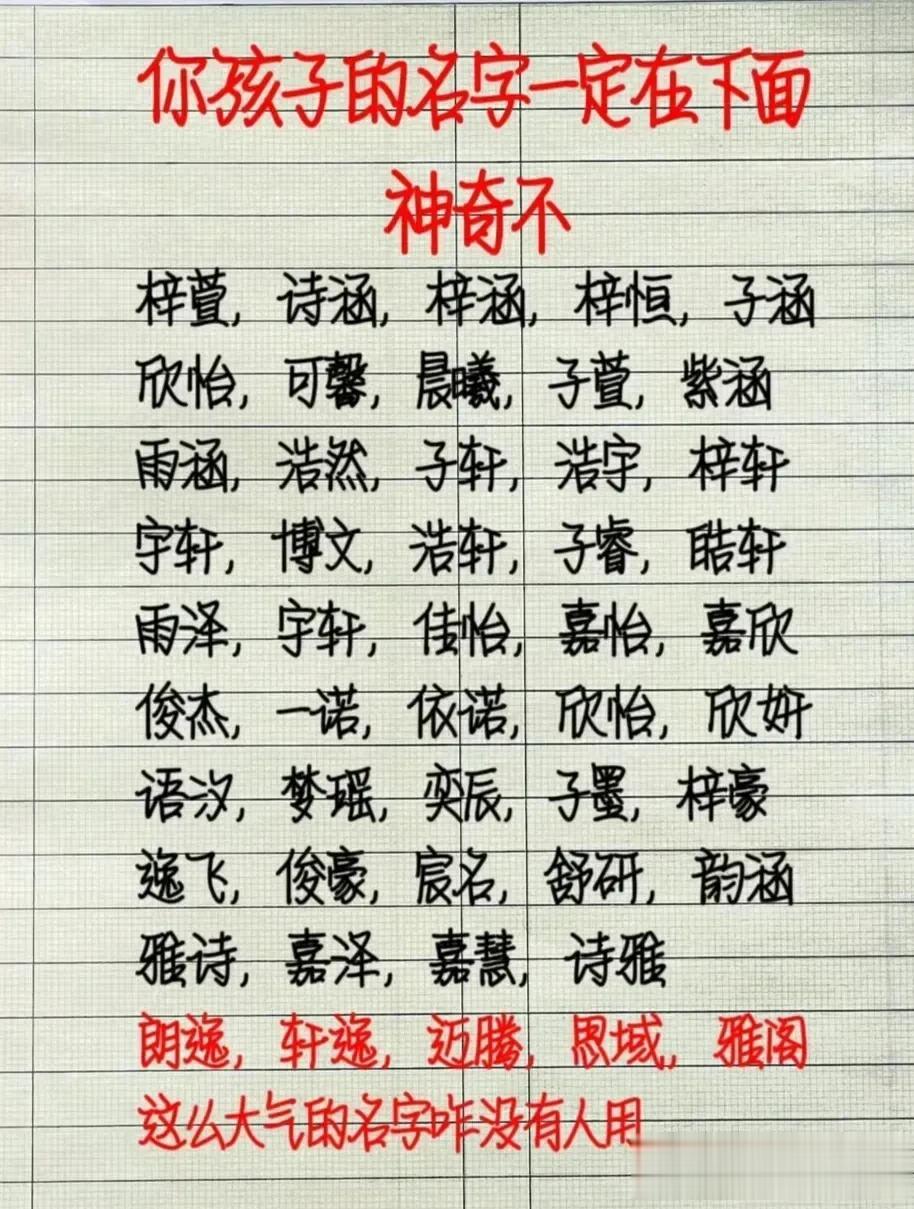 你孩子的名字一定在下面
神奇不
梓萱, 诗涵, 梓涵, 梓恒, 子涵
欣怡, 可馨, 晨曦, 子萱, 紫涵
雨涵, 浩然, 子轩, 浩宇, 梓轩
宇轩, 博文, 浩轩, 子睿, 皓轩
雨泽, 宇轩, 佳怡, 嘉怡, 嘉欣
俊杰, 一诺, 依诺, 欣怡, 欣妍
语汐, 梦瑶, 奕辰, 子墨, 梓豪
逸飞, 俊豪, 宸名, 舒研, 韵涵
雅诗, 嘉泽, 嘉慧, 诗雅
朗逸, 轩逸, 迈腾, 思域,, 雅阁
这么大气的名字咋没有人用